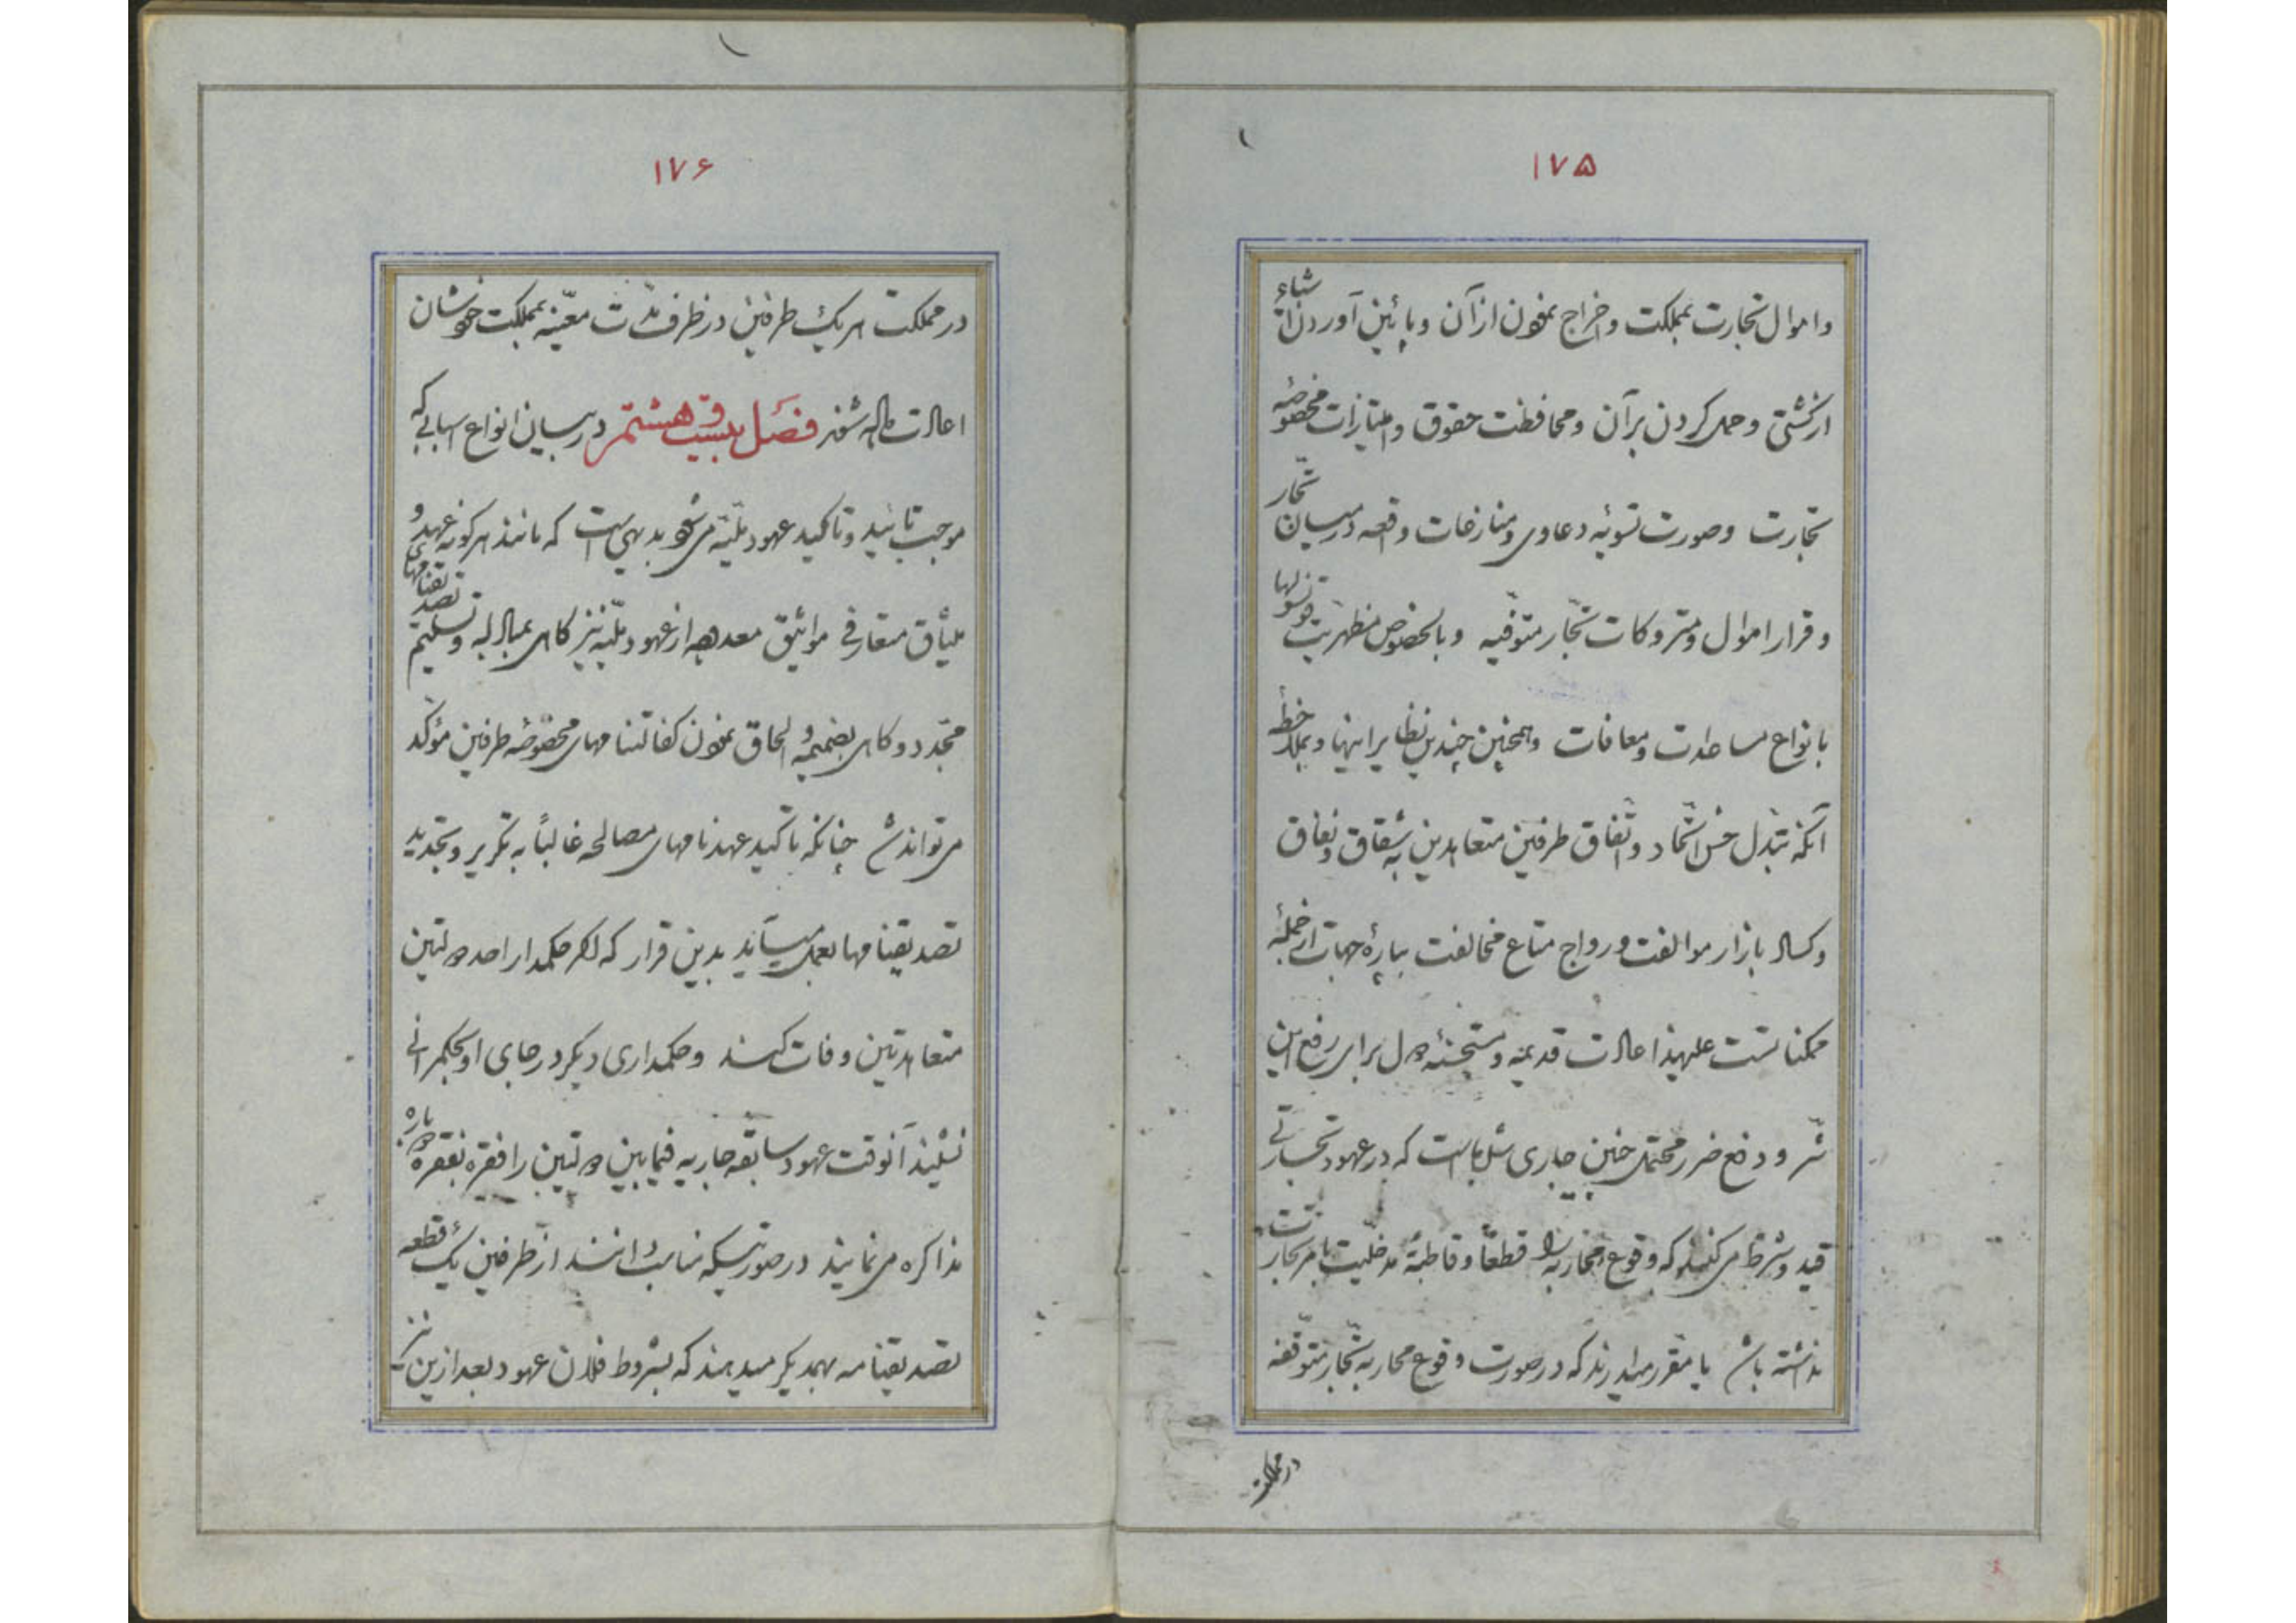 ۱۷۵
و اموال تجارت بمملکت و اخراج نمودن از آن و پائین آوردن اشیاء
از کشتی و حمل کردن بر آن و محافظت حقوق و امتیازات مخصوصهٔ
تجارت و صورت تسویهٔ دعاوی و منازعات واقعه در میان تجّار
و قرار اموال و متروکات تجّار متوفّیه و بالخصوص مظهریّت قونسولها
بانواع مساعدات و معافات و همچنین چندین نظایر اینها و بملاحظهٔ
آنکه تبدّل حسن اتّحاد و اتّفاق طرفین متعاهدین به شقاق و نفاق
و کساد بازار موالفت و رواج متاع مخالفت بپارهٔ جهات از جملهٔ
ممکناتست علیهذا عادت قدیمه و مستحسنهٔ دول برای رفع این
شر و دفع ضرر محتمل چنین جاری شده است که در عهود تجارتی
قید و شرط می‌کنند که وقوع محاربه را قطعاً و قاطبةً مدخلیت بامر تجارت
نداشته باشد یا مقرر میدارند که در صورت وقوع محاربه تجّار متوقّفه
در مملکت
۱۷۶
در مملکت هر یک طرفین در ظرف مدّت معیّنه بمملکت خودشان
اعادت داده شوند فصل بیست و هشتم در بیان انواع اسبابی که
موجب تائید و تاکید عهود ملّیّه می‌شود بدیهی است که مانند هرگونه عهد و
میثاق متعارفی مواثیق معدوده از عهود ملّیّه نیز گاهی بمبادله و تسلیم تصدیقنامهای
مجدّد و گاهی بضمیمه و الحاق نمودن کفالتنامهای مخصوصهٔ طرفین مؤکّد
می‌تواند شد چنانکه تاکید عهدنامهای مصالحه غالباً به تکریر و تجدید
تصدیقنامها بعمل میآید بدین قرار که اگر حکمدار احد دولتین
متعاهدتین وفات کند و حکمداری دیگر در جای او بحکمرانی
نشیند آنوقت عهود سابقه جاریه فیمابین دولتین را فقره بفقره دوباره
مذاکره می‌نمایند در صورتیکه مناسب دانند از طرفین یک قطعه
تصدیقنامه بهمدیگر میدهند که بشروط فلان عهود بعد ازین نیز